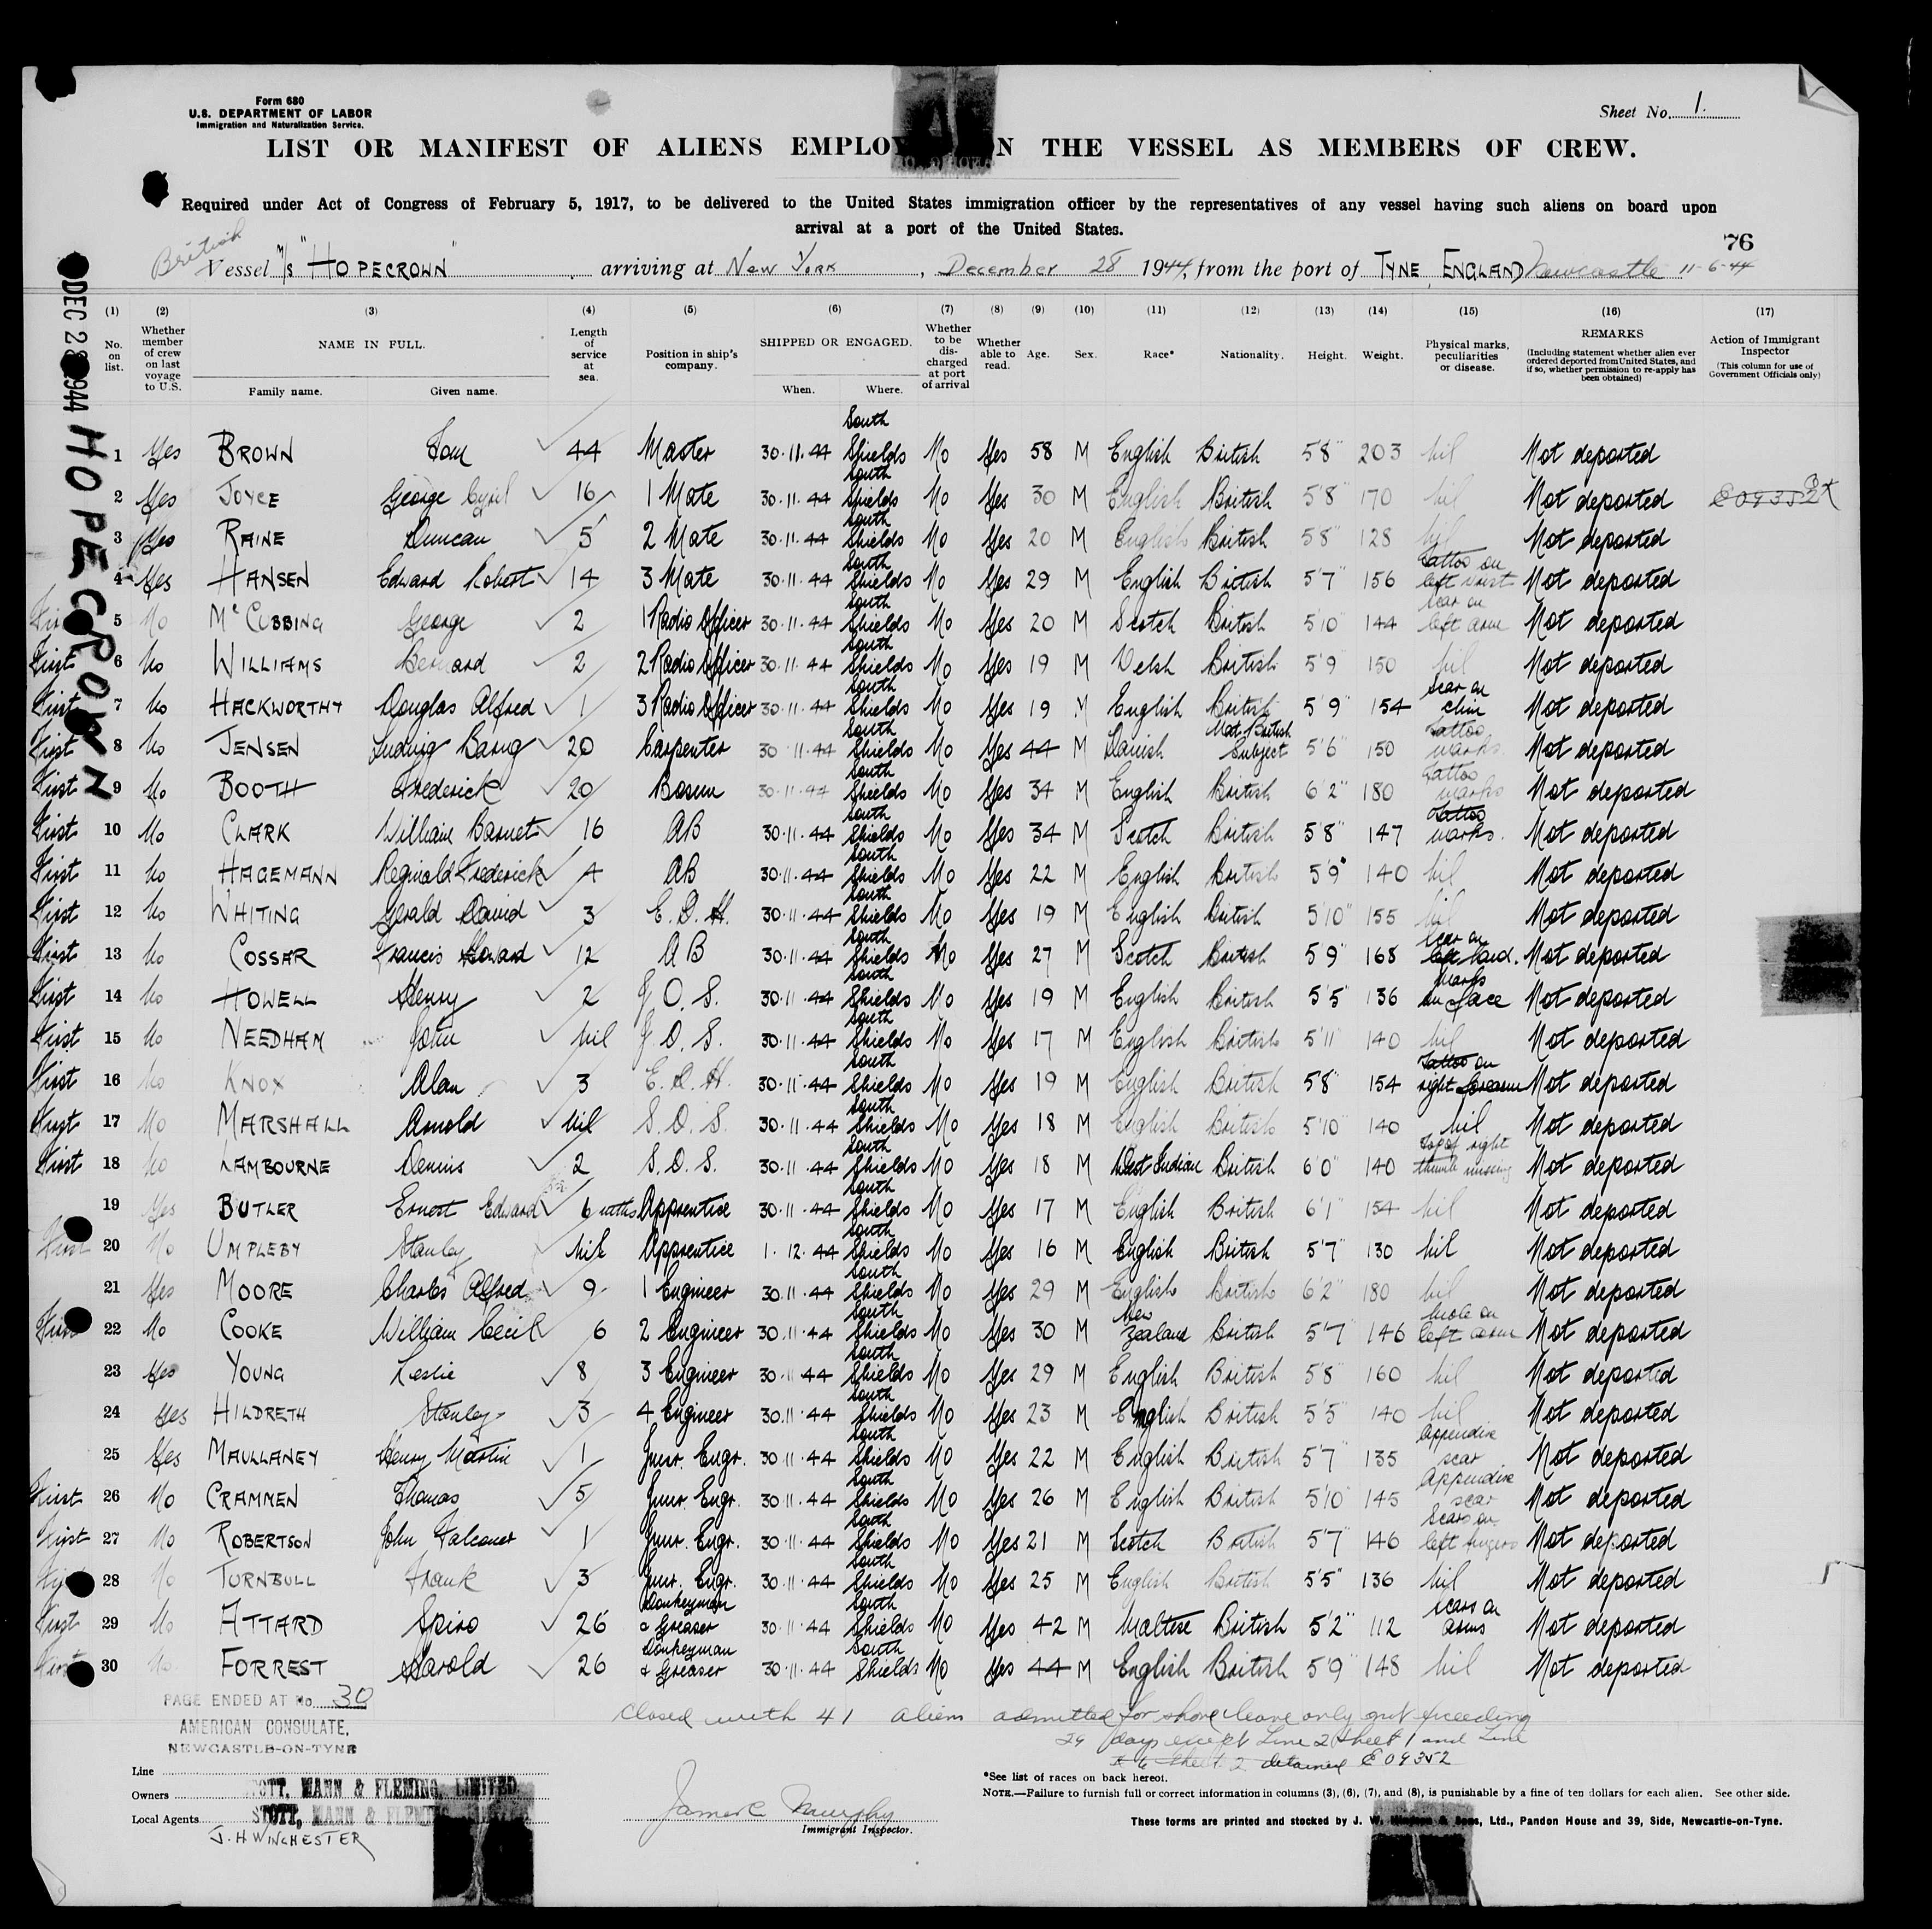 Form 680
U.S. DEPARTMENT OF LABOR
Immigration and Naturalization Service.
Sheet No. 1.
LIST OR MANIFEST OF ALIENS EMPLOY N THE VESSEL AS MEMBERS OF CREW.
Required under Act of Congress of February 5, 1917, to be delivered to the United States immigration officer by the representatives of any vessel having such aliens on board upon
arrival at a port of the United States.
76
British
Vessel M/S "HOPECROWN" arriving at New York, December 28 1944, from the port of TYNE, ENGLAND Newcastle 11-6-44
DEC 28 1944 HOPECROWN
(1) (2) (3) (4) (5) (6) (7) (8) (9) (10) (11) (12) (13) (14) (15) (16) (17)
No. on list. Whether member of crew on last voyage to U.S. NAME IN FULL. Family name. Given name. Length of service at sea. Position in ship's company. SHIPPED OR ENGAGED. When. Where. Whether to be discharged at port of arrival Whether able to read. Age. Sex. Race* Nationality. Height. Weight. Physical marks, peculiarities or disease. REMARKS (Including statement whether alien ever ordered deported from United States, and if so, whether permission to re-apply has been obtained) Action of Immigrant Inspector (This column for use of Government Officials only)
1 Yes BROWN Tom 44 Master 30.11.44 South Shields No Yes 58 M English British 5'8" 203 nil Not deported
2 Yes JOYCE George Cyril 16 1 Mate 30.11.44 South Shields No Yes 30 M English British 5'8" 170 nil Not deported E09352
3 Yes RAINE Duncan 5 2 Mate 30.11.44 South Shields No Yes 20 M English British 5'8" 128 nil Not deported
4 Yes HANSEN Edward Robert 14 3 Mate 30.11.44 South Shields No Yes 29 M English British 5'7" 156 Tattoo on left wrist Not deported
5 No McCUBBING George 2 1 Radio Officer 30.11.44 South Shields No Yes 20 M Scotch British 5'10" 144 scar on left arm Not deported
First 6 No WILLIAMS Bernard 2 2 Radio Officer 30.11.44 South Shields No Yes 19 M Welsh British 5'9" 150 nil Not deported
First 7 No HACKWORTHY Douglas Alfred 1 3 Radio Officer 30.11.44 South Shields No Yes 19 M English British 5'9" 154 scar on chin Not deported
First 8 No JENSEN Ludvig 20 Carpenter 30.11.44 South Shields No Yes 44 M Danish Not British Subject 5'6" 150 Tattoo marks Not deported
First 9 No BOOTH Frederick 20 Bosun 30.11.44 South Shields No Yes 34 M English British 6'2" 180 Tattoo marks Not deported
First 10 No CLARK William Barnet 16 AB 30.11.44 South Shields No Yes 34 M Scotch British 5'8" 147 Tattoo marks. Not deported
First 11 No HAGEMANN Reginald Frederick 4 AB 30.11.44 South Shields No Yes 22 M English British 5'9" 140 nil Not deported
First 12 No WHITING Gerald David 3 E.D.H. 30.11.44 South Shields No Yes 19 M English British 5'10" 155 nil Not deported
First 13 No COSSAR Francis 12 AB 30.11.44 South Shields No Yes 27 M Scotch British 5'9" 168 Scar on left hand. Not deported
First 14 No HOWELL Henry 2 J.O.S. 30.11.44 South Shields No Yes 19 M English British 5'5" 136 marks on face Not deported
First 15 No NEEDHAM John nil J.O.S. 30.11.44 South Shields No Yes 17 M English British 5'11" 140 nil Not deported
First 16 No KNOX Alan 3 E.D.H. 30.11.44 South Shields No Yes 19 M English British 5'8" 154 Tattoo on right forearm Not deported
First 17 No MARSHALL Arnold nil S.O.S. 30.11.44 South Shields No Yes 18 M English British 5'10" 140 nil Not deported
First 18 No LAMBOURNE Dennis 2 S.O.S. 30.11.44 South Shields No Yes 18 M West Indian British 6'0" 140 top of right thumb missing Not deported
19 Yes BUTLER Ernest Edward 6 mths Apprentice 30.11.44 South Shields No Yes 17 M English British 6'1" 154 nil Not deported
First 20 No UMPLEBY Stanley nil Apprentice 1.12.44 South Shields No Yes 16 M English British 5'7" 130 nil Not deported
21 Yes MOORE Charles Alfred 9 1 Engineer 30.11.44 South Shields No Yes 29 M English British 6'2" 180 nil Not deported
First 22 No COOKE William Cecil 6 2 Engineer 30.11.44 South Shields No Yes 30 M New Zealand British 5'7" 146 mole on left arm Not deported
23 Yes YOUNG Leslie 8 3 Engineer 30.11.44 South Shields No Yes 29 M English British 5'8" 160 nil Not deported
24 Yes HILDRETH Stanley 3 4 Engineer 30.11.44 South Shields No Yes 23 M English British 5'5" 140 nil Not deported
25 Yes MAULLANEY Henry Martin 1 Junr. Engr. 30.11.44 South Shields No Yes 22 M English British 5'7" 135 Appendix scar Not deported
First 26 No CRAMMEN Thomas 5 Junr. Engr. 30.11.44 South Shields No Yes 26 M English British 5'10" 145 Appendix scar Not deported
First 27 No ROBERTSON John Falconer 1 Junr. Engr. 30.11.44 South Shields No Yes 21 M Scotch British 5'7" 146 Scars on left fingers Not deported
28 No TURNBULL Frank 3 Junr. Engr. 30.11.44 South Shields No Yes 25 M English British 5'5" 136 nil Not deported
First 29 No ATTARD Spiro 26 Donkeyman & Greaser 30.11.44 South Shields No Yes 42 M Maltese British 5'2" 112 scars on arms Not deported
First 30 No FORREST Harold 26 Donkeyman & Greaser 30.11.44 South Shields No Yes 44 M English British 5'9" 148 nil Not deported
PAGE ENDED AT No. 30
AMERICAN CONSULATE,
NEWCASTLE-ON-TYNE
Closed with 41 aliens admitted for shore leave only not exceeding
29 days except Line 2 Sheet 1 and Line
6 Sheet 2 detained E09352
Line
Owners STOTT, MANN & FLEMING, LIMITED
Local Agents STOTT, MANN & FLEMING
J.H WINCHESTER
Immigrant Inspector.
*See list of races on back hereof.
NOTE.—Failure to furnish full or correct information in columns (3), (6), (7), and (8), is punishable by a fine of ten dollars for each alien. See other side.
These forms are printed and stocked by J. W. & Sons, Ltd., Pandon House and 39, Side, Newcastle-on-Tyne.